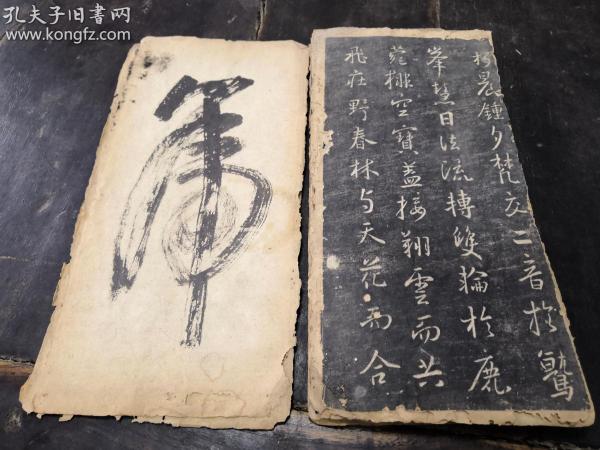 孔夫子旧书网
www.kongfz.com
扵晨鍾夕梵交二音扵鷲
峯慧日法流轉雙輪扵鹿
苑排空寶蓋接翔雲而共
飛莊野春林与天花而合
虎